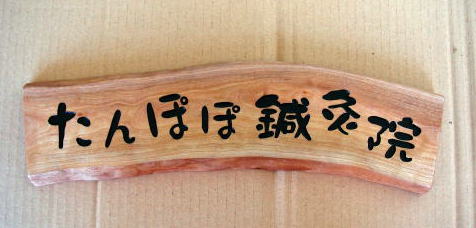 たんぽぽ鍼灸院